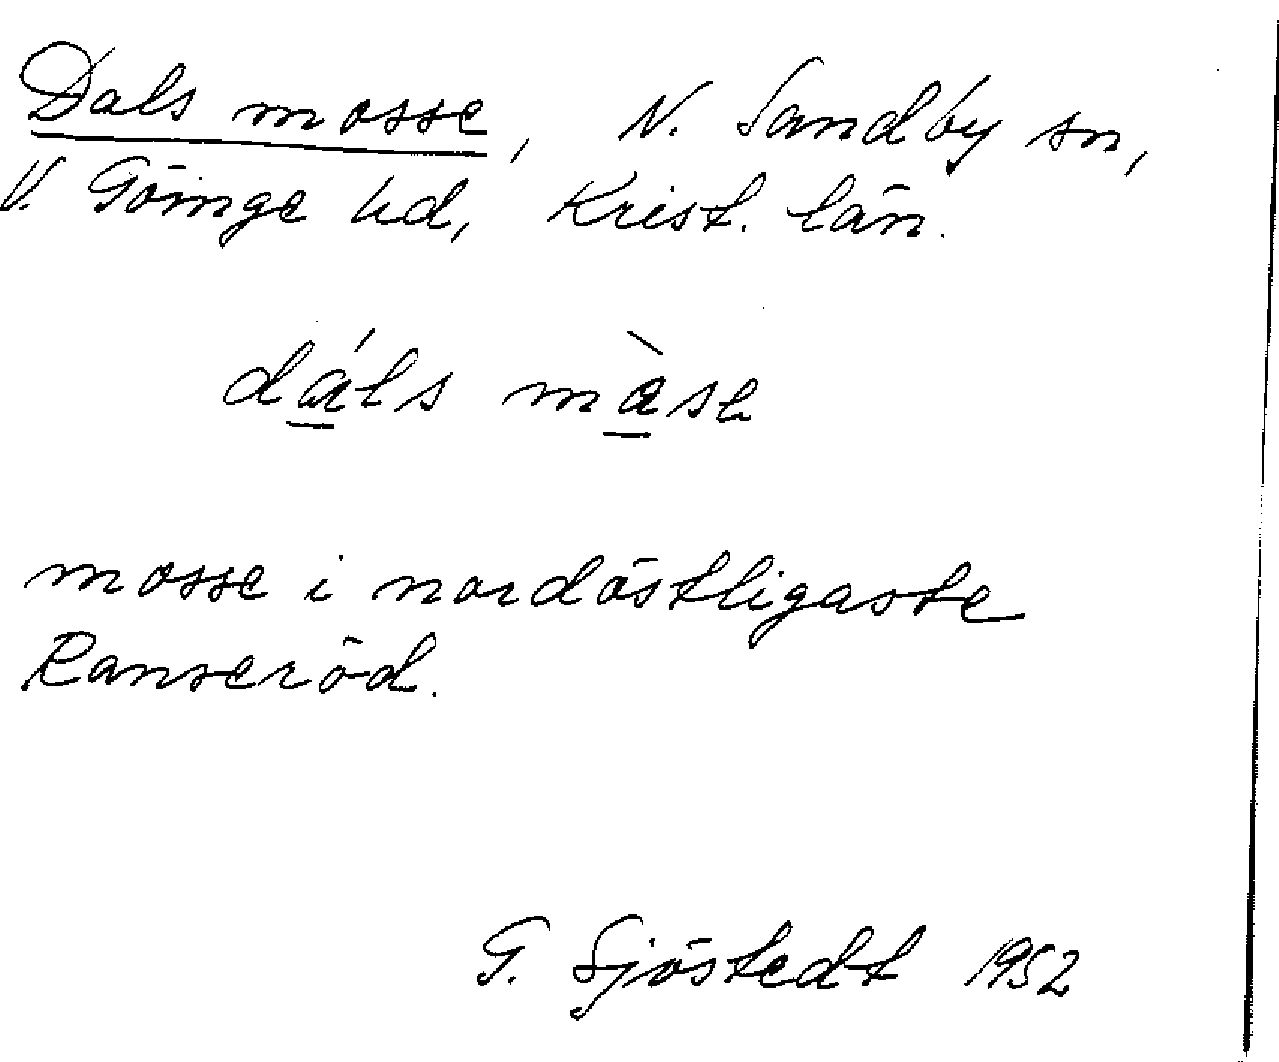 Dals mosse, N. Sandby sn,
V. Göinge hd, Krist. län.
dáls màse
mosse i nordöstligaste
Ranseröd.
G. Sjöstedt 1952